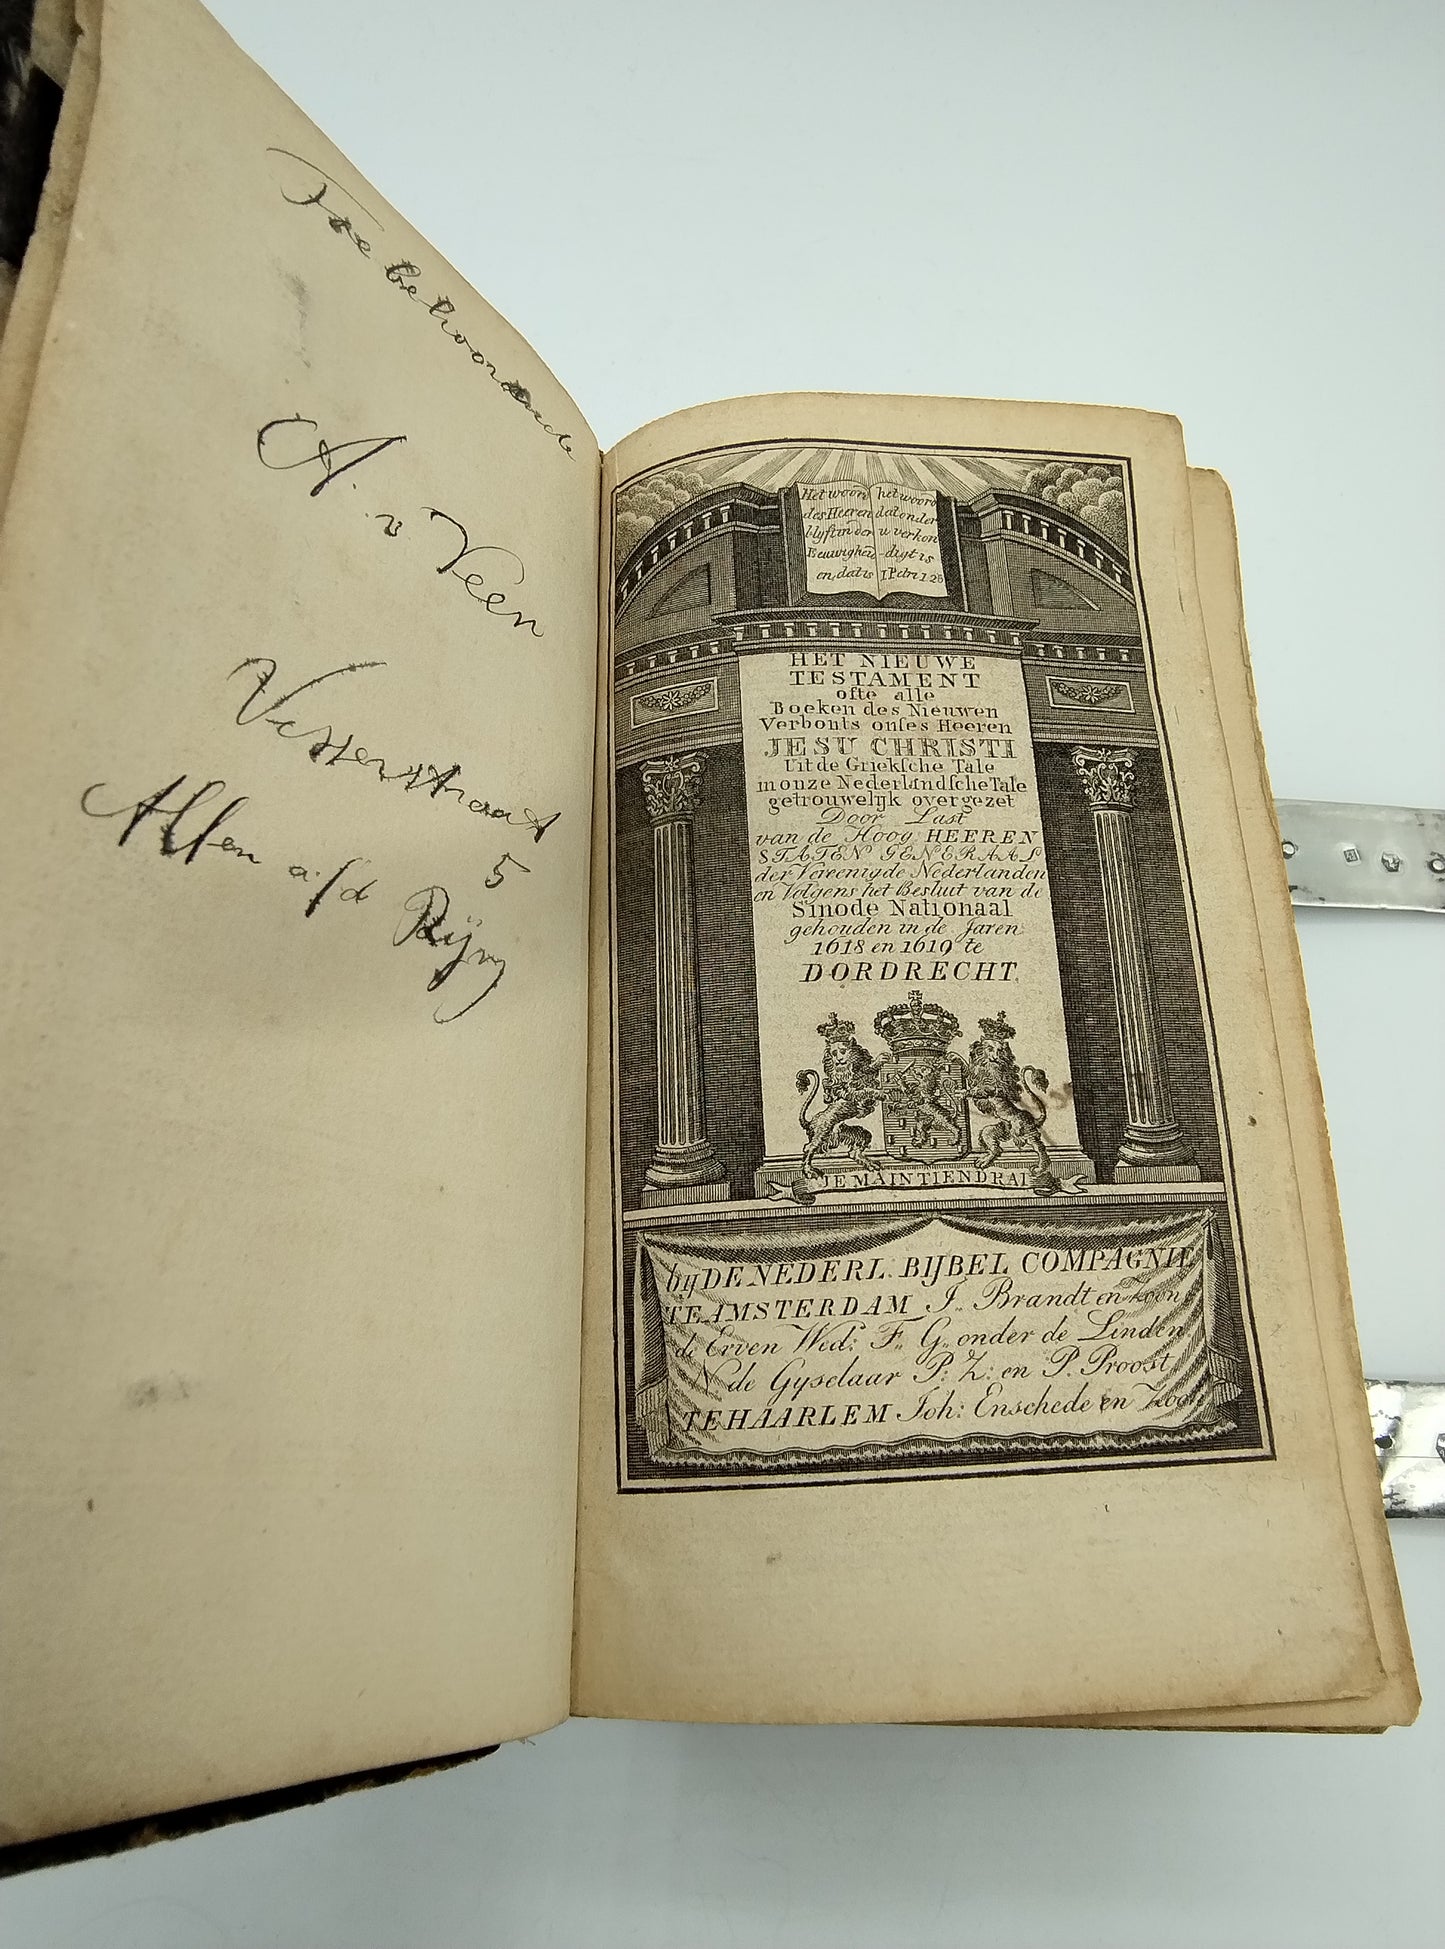 Toebehoorende
A. v. Veen
Visserstraat
5
Alfen a/d Rijn
Het woord
des Heeren
blyft in der
Eeuwigheid
en, dat is
het woord
dat onder
u verkon
-digt is
I Petri 1 25
HET NIEUWE
TESTAMENT
ofte alle
Boeken des Nieuwen
Verbonts onses Heeren
JESU CHRISTI
Uit de Grieksche Tale
in onze Nederlandsche Tale
getrouwelyk overgezet
Door Last
van de Hoog HEEREN
STATEN GENERAAL
der Vereenigde Nederlanden
en Volgens het Besluit van de
Sinode Nationaal
gehouden in de Jaren
1618 en 1619 te
DORDRECHT.
JE MAINTIENDRAI
bij DE NEDERL. BIJBEL COMPAGNIE
TE AMSTERDAM J. Brandt en Zoon
de Erven Wed: F. G. onder de Linden
N de Gyselaar P: Z: en P. Proost
TE HAARLEM Joh: Enschede en Zoon